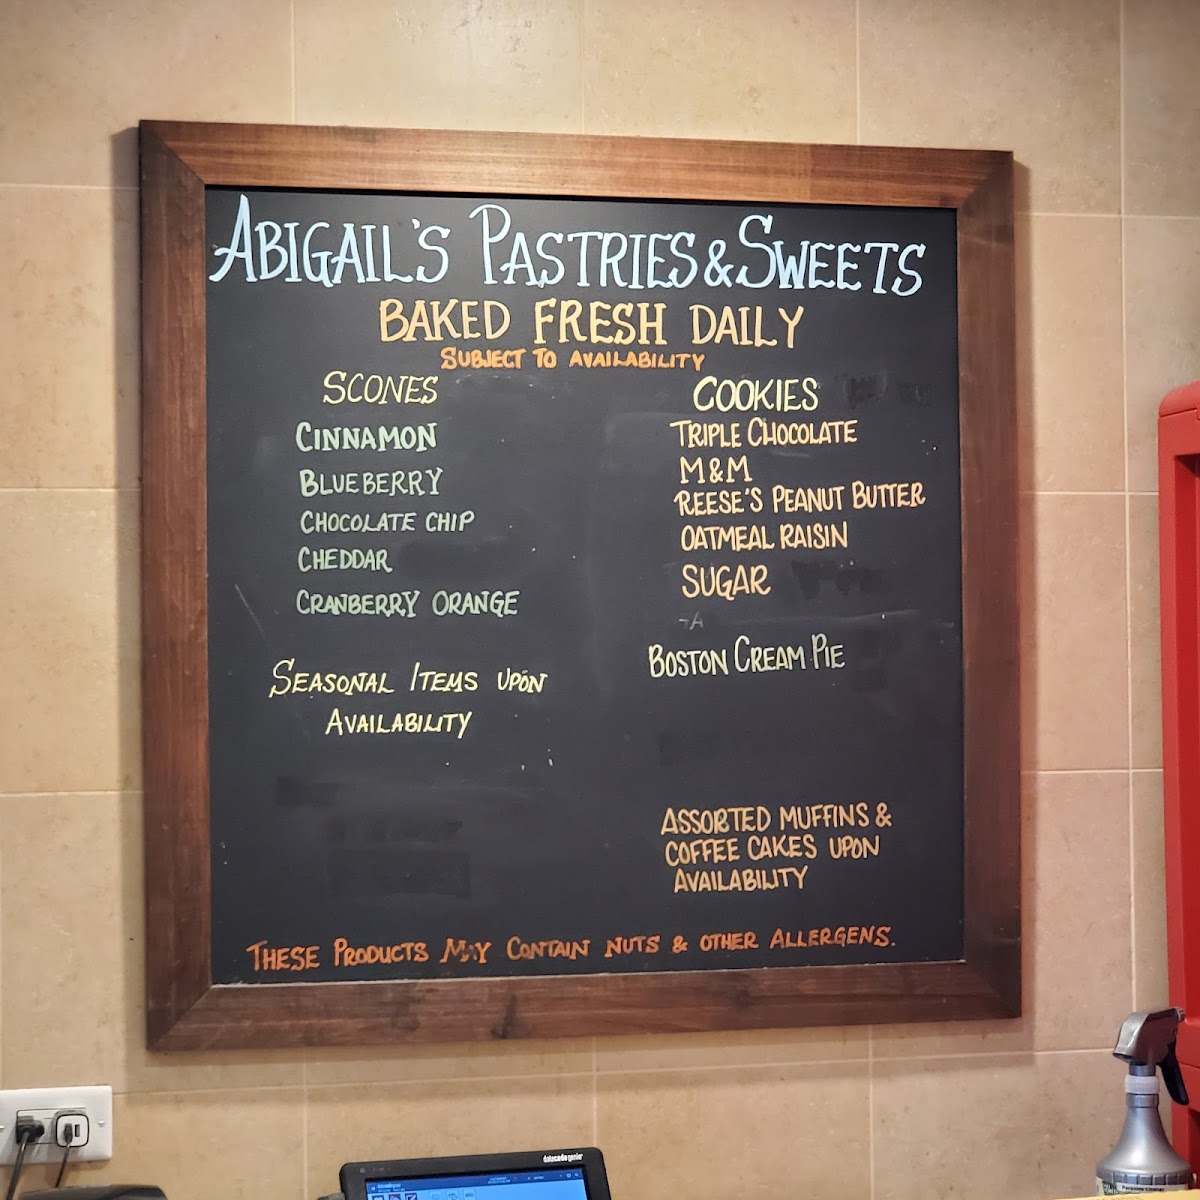 ABIGAIL'S PASTRIES & SWEETS
BAKED FRESH DAILY
SUBJECT TO AVAILABILITY
SCONES
CINNAMON
BLUEBERRY
CHOCOLATE CHIP
CHEDDAR
CRANBERRY ORANGE
SEASONAL ITEMS UPON
AVAILABILITY
COOKIES
TRIPLE CHOCOLATE
M&M
REESE'S PEANUT BUTTER
OATMEAL RAISIN
SUGAR
-A
BOSTON CREAM PIE
ASSORTED MUFFINS &
COFFEE CAKES UPON
AVAILABILITY
THESE PRODUCTS MAY CONTAIN NUTS & OTHER ALLERGENS.